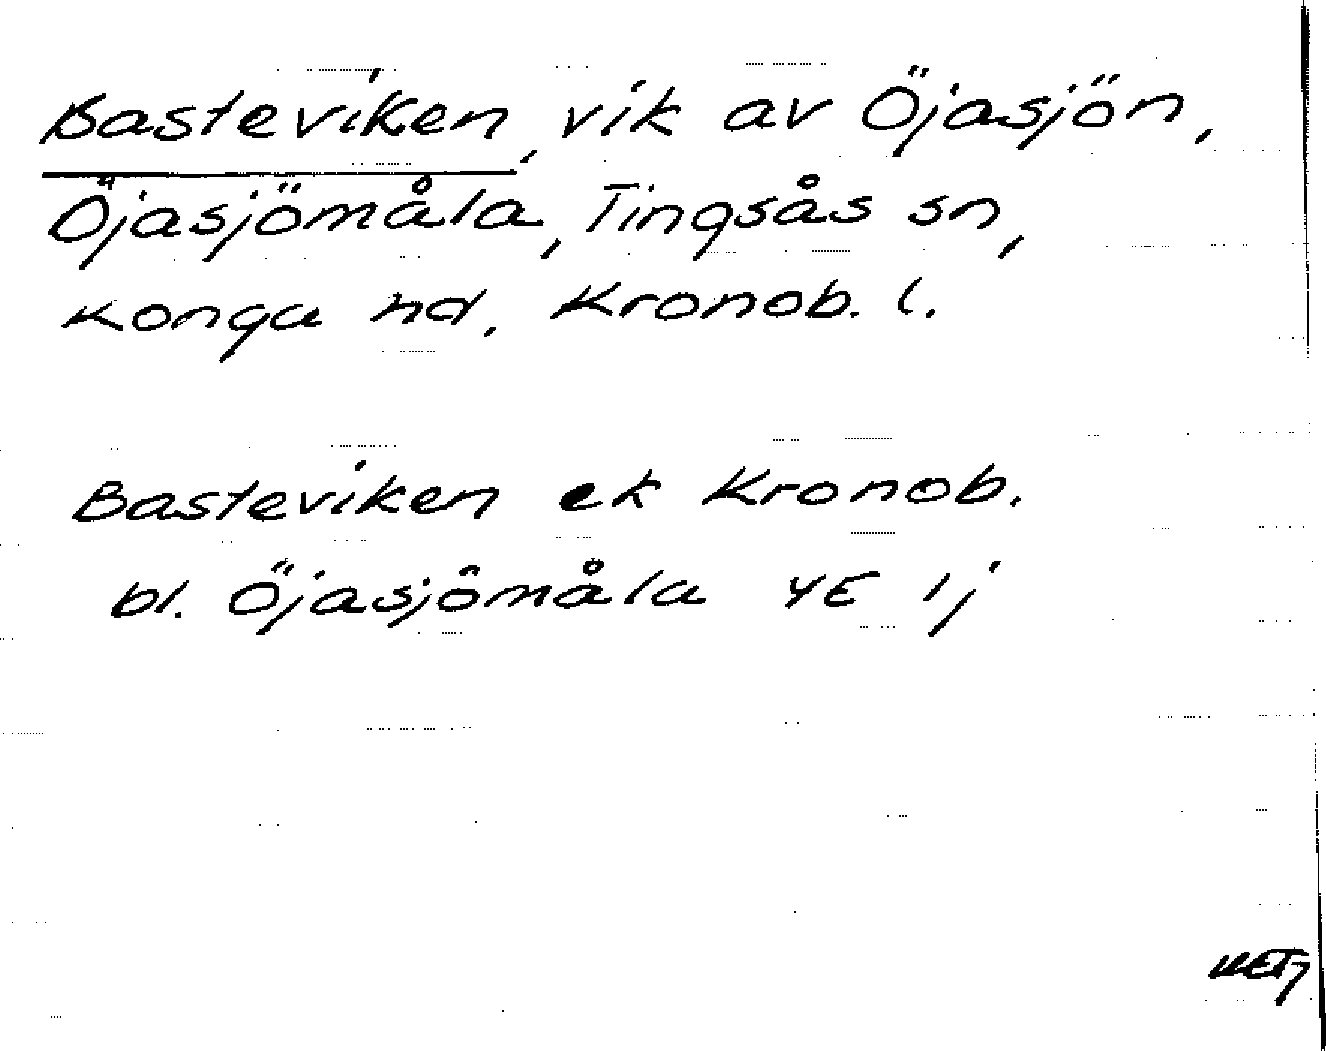 Basteviken, vik av Öjasjön,
Öjasjömåla, Tingsås sn,
Konga hd, Kronob. l.
Basteviken ek Kronob.
bl. Öjasjömåla 4E 1j